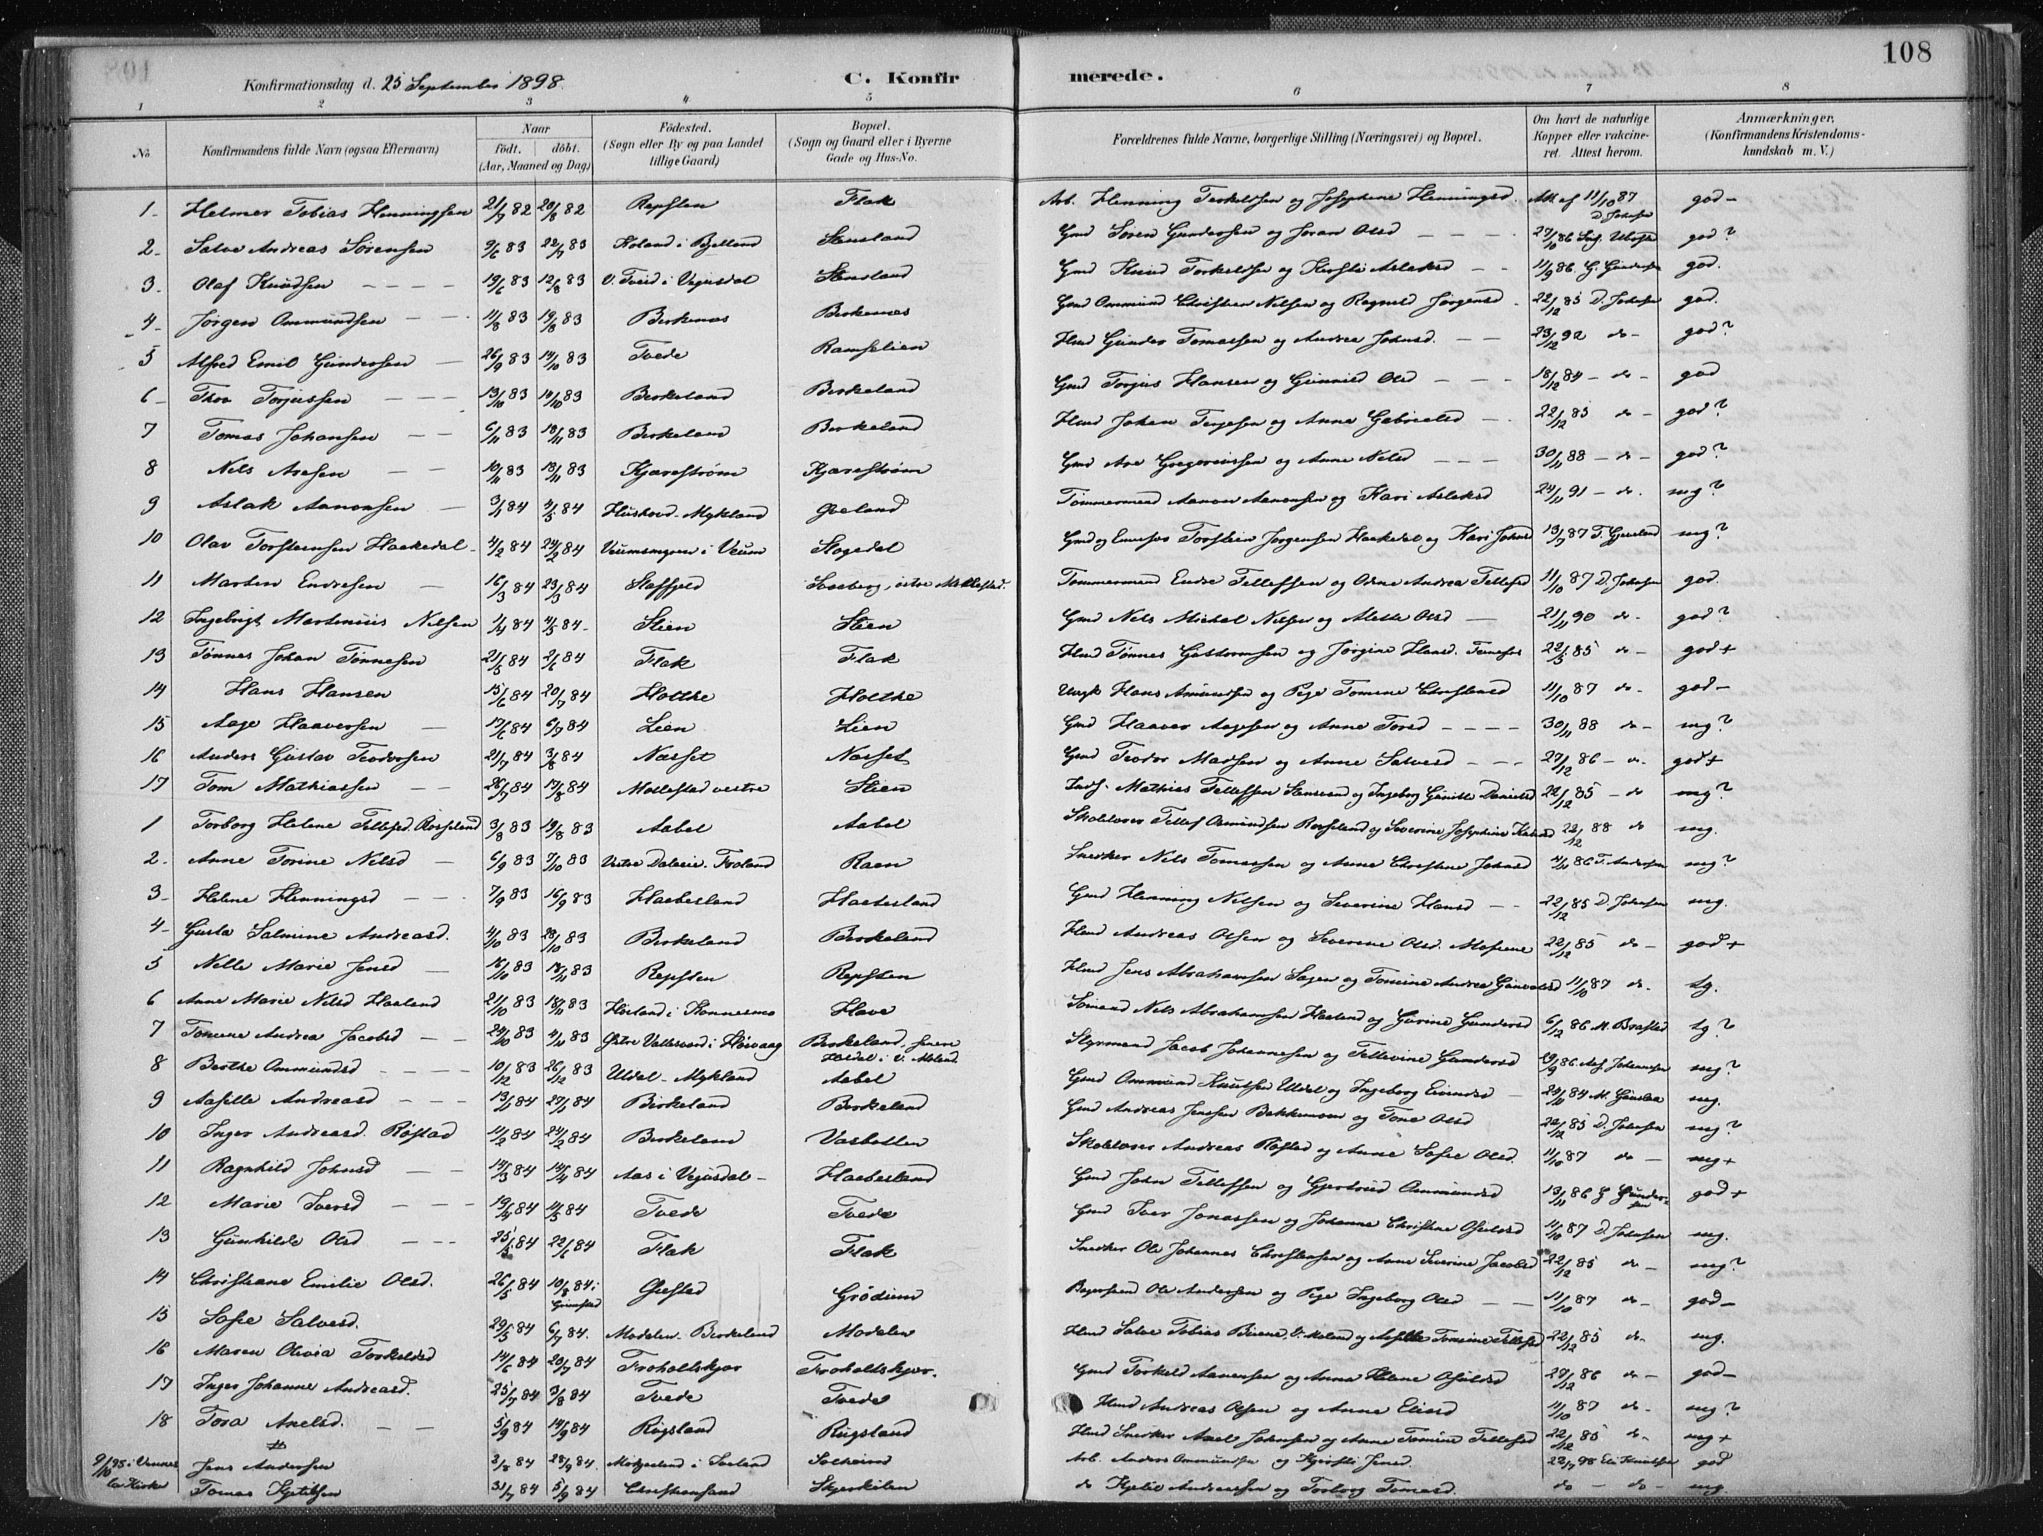 108
Konfirmationsdag d. 25 September 1898.
C. Konfirmerede.
1 2 3 4 5 6 7 8
No
Konfirmandens fulde Navn (ogsaa Efternavn)
Naar født. døbt. (Aar, Maaned og Dag)
Födested. (Sogn eller By og paa Landet tillige Gaard)
Bopæl. (Sogn og Gaard eller i Byerne Gade og Hus-No.
Forældrenes fulde Navne, borgerlige Stilling (Næringsvei) og Bopæl.
Om havt de naturlige Kopper eller vakcineret. Attest herom.
Anmærkninger. (Konfirmandens Kristendomskundskab m. V.)
1 - Helmer Tobias Henningsen 21/7 82 20/8 82 Repsten Flak Arb. Henning Terkeldsen og Josephine Henningsd. Att af 11/10 87 D. Johnsen god -
2 - Salve Andreas Sørensen 9/6 83 22/7 83 Stensland Gmd Søren Gundersen og Joran Olsd 27/10 86 god?
3 - Olaf Knudsen 19/6 83 12/8 83 V. Tveid i Vegusdal Stensland Gmd Knud Torkeldsen og Kirsti Aslaksd 11/9 86 G. Gundersen god.
4 - Jørgen Ommundsen 11/8 83 19/8 83 Birkenes Birkenes Gmd Ommund Christian Nilsen og Ragnild Jørgensd. 22/12 85 D. Johnsen god.
5 Alfred Emil Gundersen 26/9 83 14/10 83 Tvede Ramselien Hmd Gunder Tomassen og Andrea Johnsd. 23/12 92 do - god?
6 - Thor Torjussen 13/10 83 14/10 83 Birkeland Birkeland Gmd Torjus Hansen og Gunnild Olsd 18/12 84 - do - god
7 Tomas Johansen 6/11 83 18/11 83 Birkeland Birkeland Hmd Johan Terjesen og Anna Gabrielsd 22/12 85 do god?
8 Nils Aresen 10/11 83 18/11 83 Kjærestrøm Kjærestrøm Gmd Are Gregoriussen og Anne Nilsd 30/11 88 - do - god?
9 Aslak Aanonsen 3/1 84 4/5 84 Mykland Øieland Tømmermand Aanon Aanonsen og Kari Aslaksd 24/11 91 - do. mg?
10 Olav Torsteinsen Haakedal 4/2 84 24/2 84 i Veum Slogedal Torstein Jørgensen Haakedal og Kari Johnsd 13/7 87 mg?
11 Marten Endresen 16/3 84 23/3 84 Støffjeld Tømmermand Endre Tellefsen og Andrea Tellefsd 11/10 87 D. Johnsen god.
12 Ingebrigt Martinius Nilsen 1/4 84 4/5 84 - Stien Stien Gmd Nils Michal Nilsen og Alette Olsd 21/11 90 do - god?
13 Tønnes Johan Tønnesen 21/5 84 2/6 84 Flak Flak Hmd Tønnes og Jørgine Hansd. 22/5 85 do - god +
14 Hans Hansen 15/6 84 20/7 84 Holthe Holthe Ungk Hans Amundsen og Pige Tomine Christensd 11/10 87 do - god -
15 Aage Haaversen 17/6 84 6/7 84 Lien Lien Gmd Haaver Aagesen og Anne Torsd 30/11 88 do - mg?
16 Anders Gustav Teodorsen 21/7 84 3/8 84 Næsset Næsset Gmd Teodor Madsen og Anne Salvesd 27/12 86 god +
17 Tom Mathiassen 26/7 84 17/8 84 Mollestad vestre Stien Inds. Mathias Tellefsen og Ingeborg Danielsd 22/12 85 - do mg?
1 Torborg Helene Tellefsd. Rosseland 3/8 83 19/8 83 Aabel Aabel Skolelærer Tellef Osmundsen Rosseland og Severine Josephine 22/12 88 do mg.
2 - Anne Torine Nilsd 6/9 83 7/10 83 Froland Raen Snedker Nils Tomassen og Anne Christine Johnsd 86 mg?
3 - Helene Henningsd 7/9 83 16/9 83 Haabesland Haabesland Gmd Henning Nilsen og Severine Hansd 22/12 85 D. Johnsen mg.
4 - Gusta Salmine Andreasd. 4/10 83 28/10 83 Birkeland Birkeland Hmd Andreas Olsen og Severine Olsd. 22/12 85 do - god +
5 Nelle Marie Jensd 16/10 83 18/11 83 Repsten Repsten Hmd Jens Abrahamsen og Tomine Andrea 11/10 87 do. tg.
6 Anne Marie Nilsd Haaland 21/10 83 18/11 83 Have Sømand Nils Abrahamsen Haaland og Gurine Gundersd 6/12 86 tg?
7 Tomine Andrea Jacobsd 24/10 83 4/11 83 i Høivaag Birkeland Styrmand Jacob Johannesen og Tellevine Gundersd 29/9 86 mg?
8 Berthe Ommundsd 10/12 83 26/12 83 Uldal - Mykland Aabel Gmd Ommund Knutsen Uldal og Ingeborg Eivindsd 24/11 84 mg.
9 Aasille Andreasd 13/1 84 27/1 84 Birkeland Birkeland Gmd Andreas Jensen og Tone Olsd 22/12 85 D. Johnsen mg?
10 Inger Andreasd. Røstad 11/2 84 24/2 84 Birkeland Vasbotten Skolelærer Andreas Røstad og Anne Sofie Olsd. 11/10 87 do - mg +
11 Ragnhild Johnsd 14/3 84 14/4 84 Aas i Vegusdal - Haabesland Gmd John Tellefsen og Gjertrud Ommundsd 13/11 86 G Gundersen god +
12 Marie Iversd 19/4 84 11/5 84 Tvede Tvede Gmd Iver Jonassen og Johanne Christine 11/10 87 D. Johnsen mg.
13 Gunhilde Olsd 25/5 84 22/6 84 Flak Flak Snedker Ole Johannes Christensen og Anne Severine Jacobsd 22/12 85 do - mg?
14 Christiane Emilie Olsd. 26/5 84 10/8 84 i Grimstad Grødum Ole Andersen og Pige Ingeborg Olsd 11/10 87 do - god -
15 Sofie Salvesd. 29/5 84 6/7 84. Modalen - Birkeland Modalen Hmd Salve Tobias og Aasille Tomine Tellefsd 22/12 85 do - mg.
16 Maren Olivia Torkeldsd 14/6 84 20/7 84 Froholtskjær Froholtskjær. Gmd Torkeld Aanensen og Anna Helene 27/12 86 do - god -
17 Inger Johanne Andreasd. 25/7 84 3/8 84 Tvede Tvede Hmd Andreas Olsen og Anne Eliasd 11/10 87 do - mg?
18 Tora Axelsd. 5/9 84 14/9 84 Rugsland Rugsland Hmd Snedker Axel Johnsen og Anne Tomine Tellefsd 22/12 85 do - mg +
Jens Andersen 2/8 84 28/9 84. Arb. Anders Ommundsen og Kjersti Jensd. 22/7 98 god
Tomas Kjetilsen 31/7 84 5/9 84 Christiansand Skjerkilen do Kjetil Andreassen og Torborg Tomasd. do - do - mg.